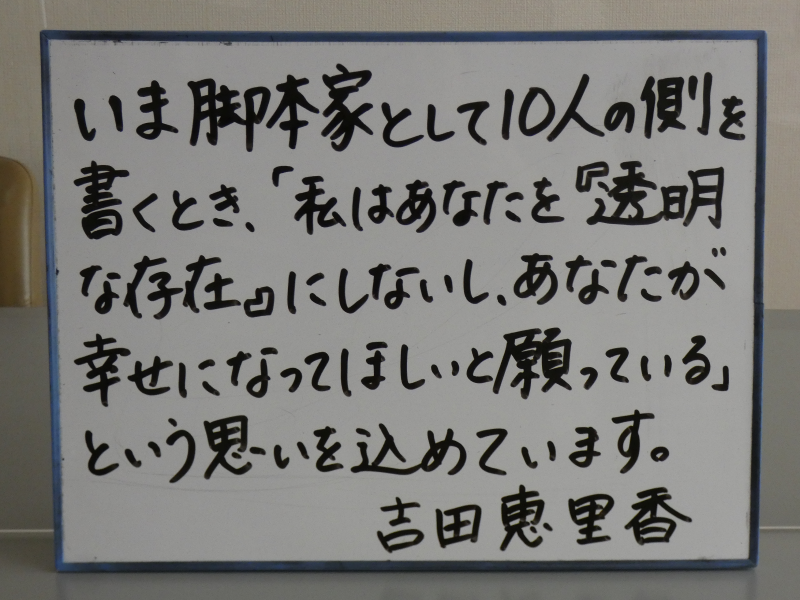 いま脚本家として10人の側を
書くとき、「私はあなたを『透明
な存在』にしないし、あなたが
幸せになってほしいと願っている」
という思いを込めています。
吉田恵里香